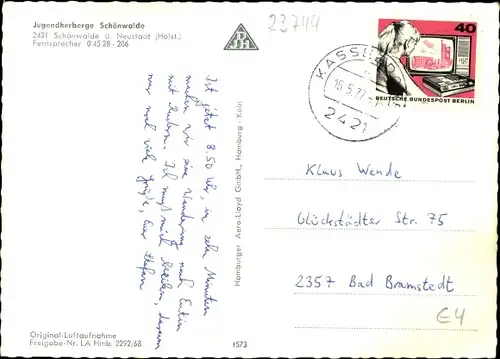 Jugendherberge Schönwalde
2431 Schönwalde ü. Neustadt (Holst.)
Fernsprecher 0 45 28 - 206
23744
40
DEUTSCHE BUNDESPOST BERLIN
KASSEEDORF
16.5.77
2421
Ist jetzt 8.50 Uhr, in zehn Minuten
machen wir eine Wanderung nach Eutin
mit Rudern. Ich muß mich beeilen, darum
nur noch viele Grüße, Euer Stefan
Hamburger Aero-Lloyd GmbH., Hamburg - Köln
Klaus Wende
Glückstädter Str. 75
2357 Bad Bramstedt
€4
Original-Luftaufnahme
Freigabe-Nr. LA Hmb. 2292/68
1573